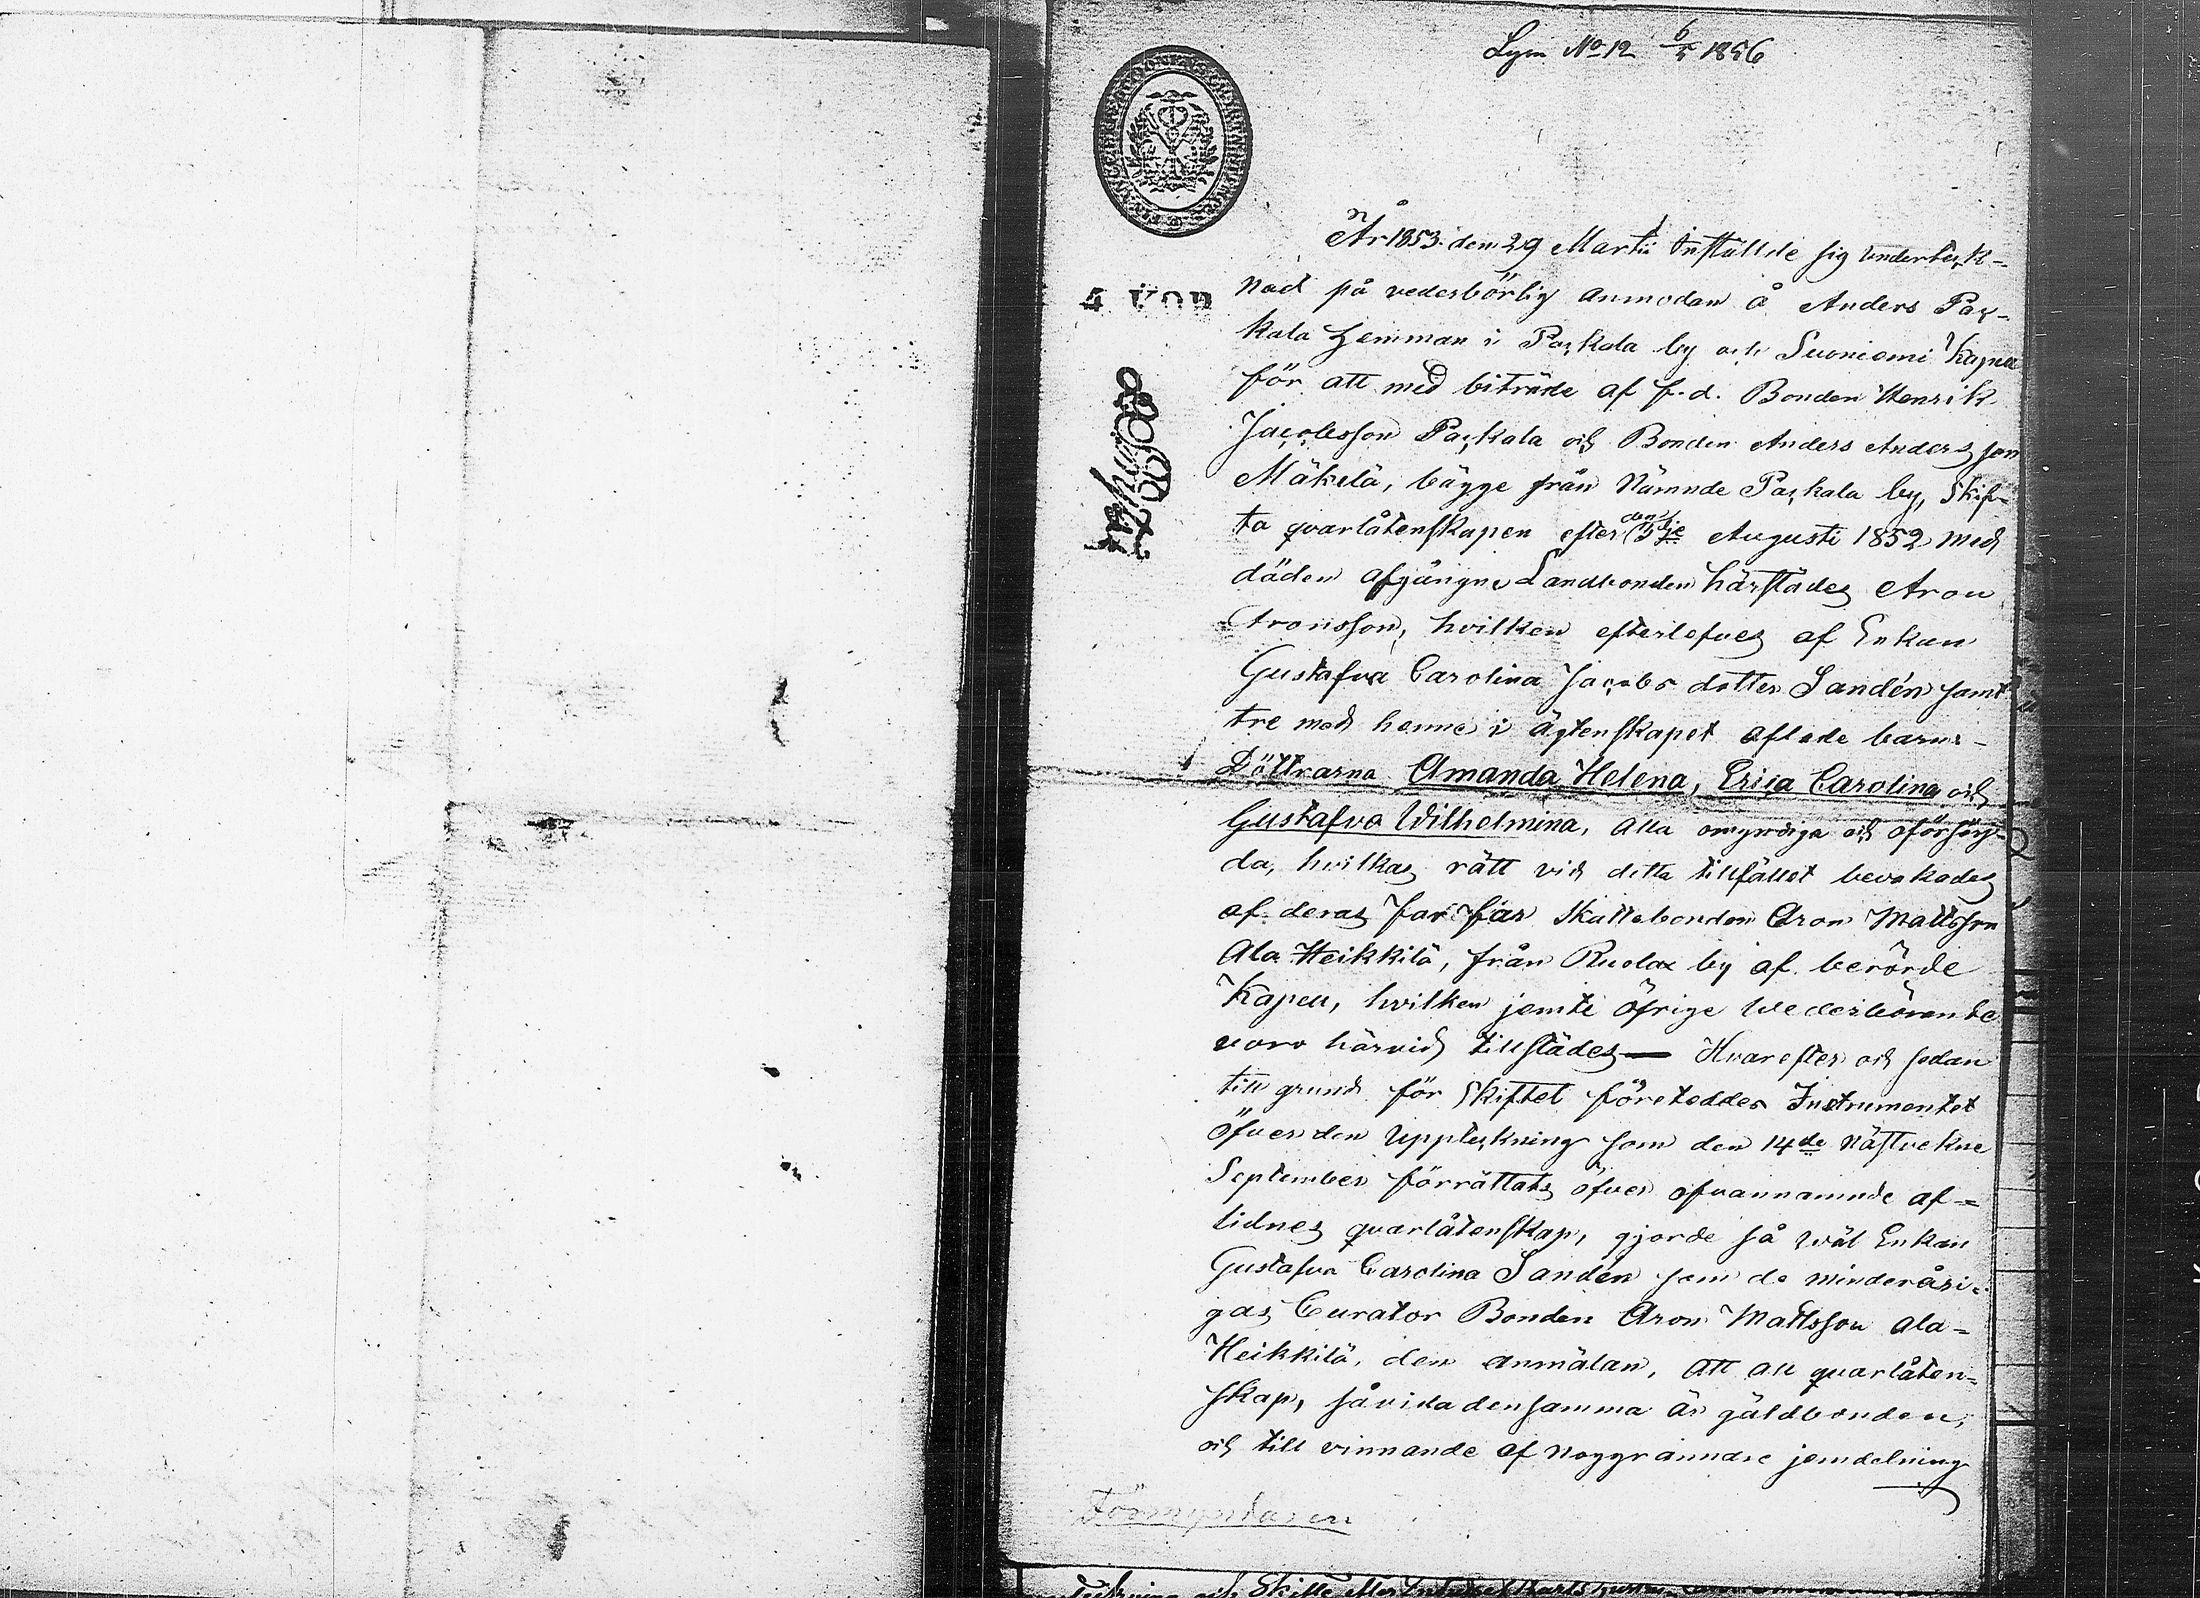 Lym No 12 6/5 1856
År 1853 den 29 Martii Inställde sig underteck-
nad på vederbörlig anmodan å Anders Pac-
kala Hemman i Packala by och Suoniemi Kapell
för att med biträde af f.d. Bonden Henrik
Jacobsson Packala och Bonden Anders Andersson
Mäkelä, bägge från Nämnde Packala by, Skif-
ta qvarlåtenskapen efter den 5te Augusti 1852 med
döden afgångne Landbonden härstädes Aron
Aronsson, hvilken efterlefves af Enkan
Gustafva Carolina Jacobs dotter Sandén samt
tre med henne i ägtenskapet aflade barn-
Döttrarna Amanda Helena, Erica Carolina och
Gustafva Wilhelmina, alla omyndiga och oförsörj-
da, hvilkas rätt vid detta tillfället bevakades
af deras far far Skattebonden Aron Mattsson
Ala Heikkilä, från by af berörde
Kapell, hvilken jemte öfrige Wederbörande
voro härvid tillstädes — Hvarefter och sedan
till grund för Skiftet företeddes Instrumentet
öfver den Uppteckning som den 14de Nästvekne
September förrättats öfver ofvannämnde af-
lidnes qvarlåtenskap, gjorde så wäl Enkan
Gustafva Carolina Sandén som de minderåri-
gas Curator Bonden Aron Mattsson Ala-
Heikkilä, den anmälan, att all qvarlåten-
skap, såvida densamma är gäldbunden,
och till vinnande af noggrannare jemdelning
Förmyndaren
4 KOP